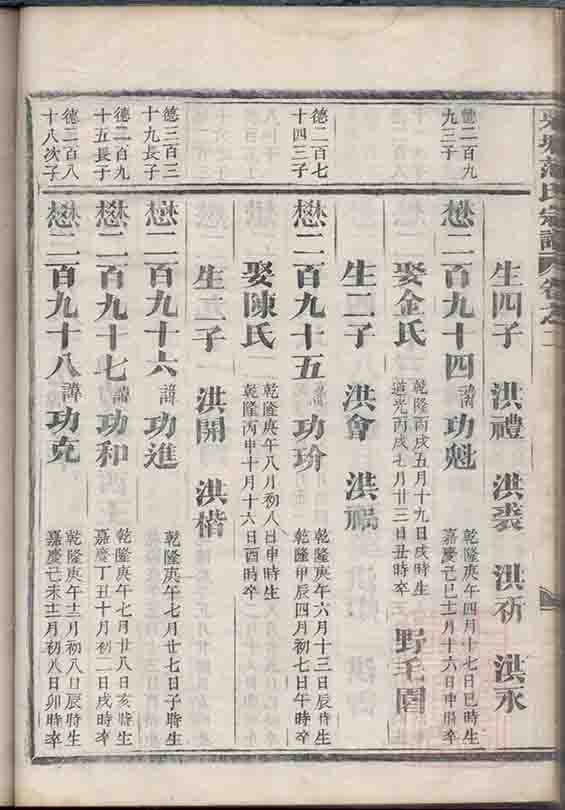 范氏宗譜
生四子 洪禮 洪裘 洪礽 洪永
德二百九
九三子
懋二百九十四 諱 功魁
乾隆庚午四月十七日巳時生
嘉慶己巳十二月十六日申時卒
娶金氏
乾隆丙戌五月十九日戌時生
道光丙戌七月廿三日丑時卒
野毛園
生二子 洪會 洪福
德二百七
十四三子
懋二百九十五 諱 功玠
乾隆庚午六月十三日辰時生
乾隆甲辰四月初七日午時卒
娶陳氏
乾隆庚午八月初八日申時生
乾隆丙申十月十六日酉時卒
生二子 洪開 洪楷
德三百三
十九長子
懋二百九十六 諱 功進
乾隆庚午七月廿七日子時生
德二百九
十五長子
懋二百九十七 諱 功和
乾隆庚午七月廿八日亥時生
嘉慶丁丑十月初二日戌時卒
德二百八
十八次子
懋二百九十八 諱 功克
乾隆庚午十二月初八日辰時生
嘉慶己未十二月初八日卯時卒